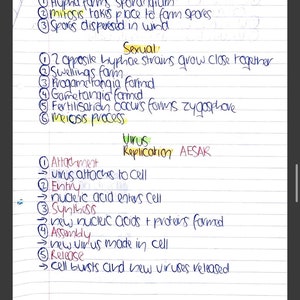 ① Hypha forms sporangium
② mitosis takes place to form spores
③ Spores dispersed in wind
Sexual
① 2 opposite hyphae strains grow close together
② Swellings form
③ Progametangia formed
④ Gametangia formed
⑤ Fertilisation occurs forms zygospore
⑥ meiosis process
Virus
Replication AESAR
① Attachment
→ virus attaches to cell
② Entry
→ nucleic acid enters cell
③ Synthesis
→ new nucleic acids + proteins formed
④ Assembly
→ new virus made in cell
⑤ Release
→ cell bursts and new viruses released